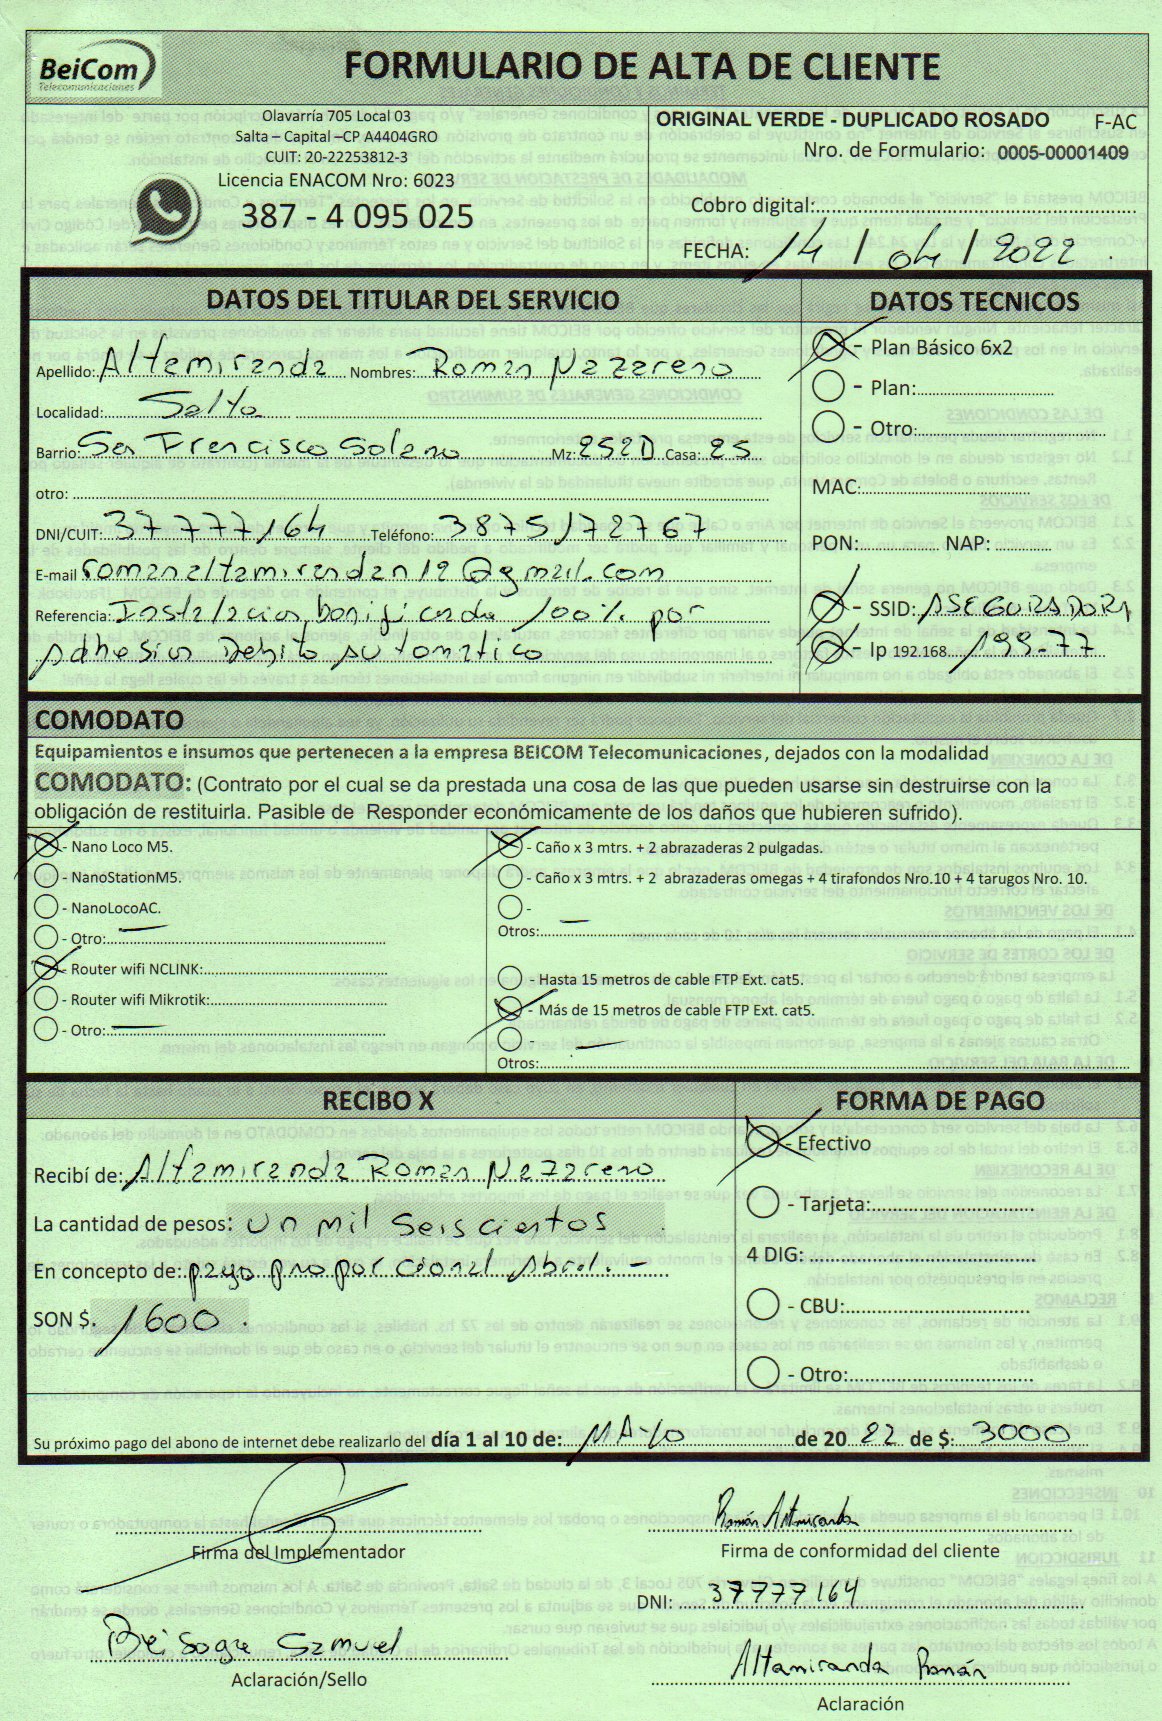 BeiCom
Telecomunicaciones
FORMULARIO DE ALTA DE CLIENTE
Olavarría 705 Local 03
Salta – Capital –CP A4404GRO
CUIT: 20-22253812-3
Licencia ENACOM Nro: 6023
387 - 4 095 025
ORIGINAL VERDE - DUPLICADO ROSADO F-AC
Nro. de Formulario: 0005-00001409
Cobro digital:
FECHA: 14 / 04 / 2022
DATOS DEL TITULAR DEL SERVICIO
Apellido: Altamiranda Nombres: Roman Nazareno
Localidad: Salta
Barrio: San Francisco Solano Mz: 252D Casa: 25
otro:
DNI/CUIT: 37777164 Teléfono: 3875172767
E-mail romanaltamirandan19@gmail.com
Referencia: Instalacion bonificada 100% por
Adhesion Debito Automatico
DATOS TECNICOS
- Plan Básico 6x2
- Plan:
- Otro:
MAC:
PON: NAP:
- SSID: ASEGURADORA
- Ip 192.168. 199-77
COMODATO
Equipamientos e insumos que pertenecen a la empresa BEICOM Telecomunicaciones, dejados con la modalidad
COMODATO: (Contrato por el cual se da prestada una cosa de las que pueden usarse sin destruirse con la
obligación de restituirla. Pasible de Responder económicamente de los daños que hubieren sufrido).
- Nano Loco M5.
- NanoStationM5.
- NanoLocoAC.
- Otro:
- Router wifi NCLINK:
- Router wifi Mikrotik:
- Otro:
- Caño x 3 mtrs. + 2 abrazaderas 2 pulgadas.
- Caño x 3 mtrs. + 2 abrazaderas omegas + 4 tirafondos Nro.10 + 4 tarugos Nro. 10.
-
Otros:
- Hasta 15 metros de cable FTP Ext. cat5.
- Más de 15 metros de cable FTP Ext. cat5.
-
Otros:
RECIBO X
Recibí de: Altamiranda Roman Nazareno
La cantidad de pesos: un mil seiscientos
En concepto de: pago proporcional Abril. -
SON $. 1600.
FORMA DE PAGO
- Efectivo
- Tarjeta:
4 DIG:
- CBU:
- Otro:
Su próximo pago del abono de internet debe realizarlo del día 1 al 10 de: MAYO de 20 22 de $: 3000
Firma del Implementador
Beisaga Samuel
Aclaración/Sello
Román Altamiranda
Firma de conformidad del cliente
DNI: 37777164
Altamiranda Román
Aclaración